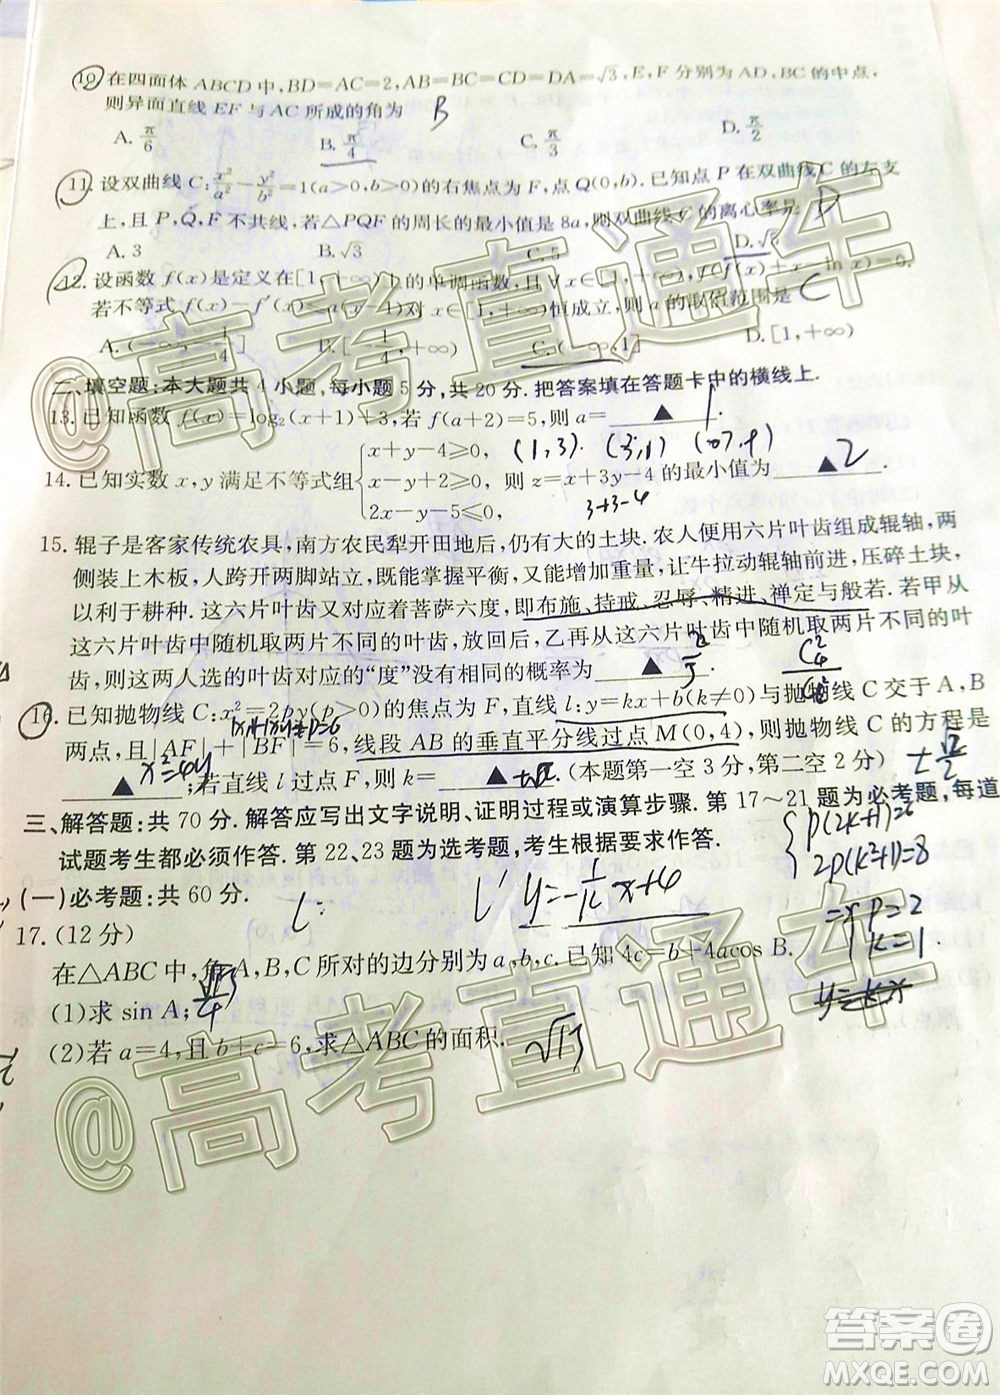 10. 在四面体 ABCD 中,BD=AC=2,AB=BC=CD=DA=√3,E,F 分别为 AD,BC 的中点,
则异面直线 EF 与 AC 所成的角为 B
A. π/6 B. π/4 C. π/3 D. π/2
11. 设双曲线 C: x²/a² − y²/b² =1(a>0,b>0)的右焦点为 F,点 Q(0,b). 已知点 P 在双曲线 C 的左支
上,且 P,Q,F 不共线,若△PQF 的周长的最小值是 8a,则双曲线 C 的离心率是 D
A. 3 B. √3 C. 5 D. √5
12. 设函数 f(x)是定义在[1,+∞)上的单调函数,且∀x∈[1,+∞), f(f(x)+x−ln x)=0.
若不等式 f(x)−f′(x)<a(x−1)恒成立,则 a 的取值范围是 C
B. [−1/4,+∞) C. (−∞,1] D. [1,+∞)
二、填空题:本大题共 4 小题,每小题 5 分,共 20 分. 把答案填在答题卡中的横线上.
13. 已知函数 f(x)=log₂(x+1)+3,若 f(a+2)=5,则 a= ▲ 1
(1,3). (3,1)
14. 已知实数 x,y 满足不等式组{x+y−4≥0, x−y+2≥0, 2x−y−5≤0, 则 z=x+3y−4 的最小值为 ▲ 2
3+3−4
15. 辊子是客家传统农具,南方农民犁开田地后,仍有大的土块. 农人便用六片叶齿组成辊轴,两
侧装上木板,人跨开两脚站立,既能掌握平衡,又能增加重量,让牛拉动辊轴前进,压碎土块,
以利于耕种. 这六片叶齿又对应着菩萨六度,即布施、持戒、忍辱、精进、禅定与般若. 若甲从
这六片叶齿中随机取两片不同的叶齿,放回后,乙再从这六片叶齿中随机取两片不同的叶
齿,则这两人选的叶齿对应的“度”没有相同的概率为 ▲ 2/5
16. 已知抛物线 C:x²=2py(p>0)的焦点为 F,直线 l:y=kx+b(k≠0)与抛物线 C 交于 A,B
两点,且|AF|+|BF|=6,线段 AB 的垂直平分线过点 M(0,4),则抛物线 C 的方程是
▲ x²=4y ;若直线 l 过点 F,则 k= ▲ . (本题第一空 3 分,第二空 2 分)
三、解答题:共 70 分. 解答应写出文字说明、证明过程或演算步骤. 第 17～21 题为必考题,每道
试题考生都必须作答. 第 22、23 题为选考题,考生根据要求作答.
2p(k²+1)=8
(一)必考题:共 60 分. l: l′ y=−1/k x+4
⇒ p=2
k=1
17. (12 分)
在△ABC 中,角 A,B,C 所对的边分别为 a,b,c. 已知 4c=b+4acos B.
(1)求 sin A;
(2)若 a=4,且 b+c=6,求△ABC 的面积.
@高考直通车
@高考直通车
答案圈
MXQE.COM